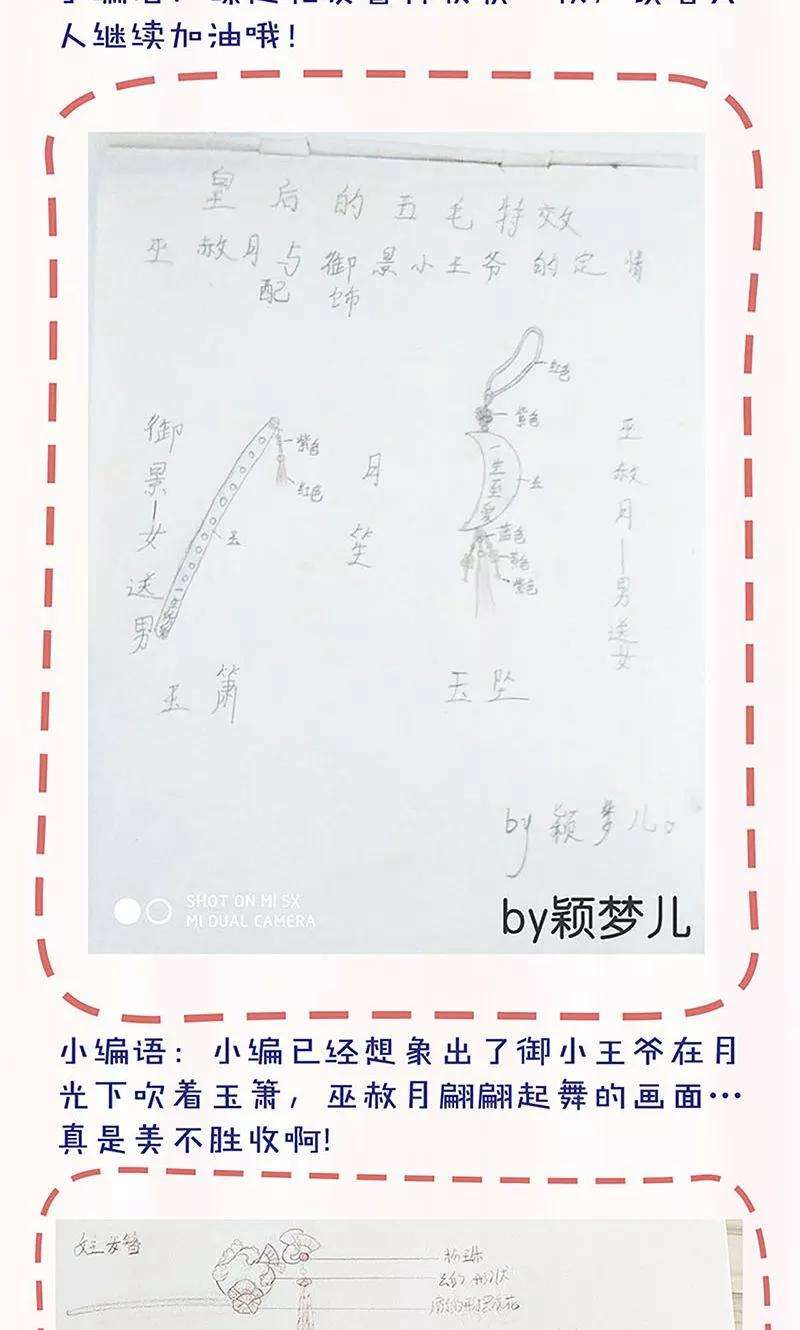 人继续加油哦!
皇后的五毛特效
巫赦月与御景小王爷的定情
配饰
御景—女送男
紫色
红色
玉
月笙
红色
紫色
一生至爱
玉
蓝色
紫色
巫赦月—男送女
玉箫
玉坠
by颖梦儿。
SHOT ON MI 5X
MI DUAL CAMERA
by颖梦儿
小编语：小编已经想象出了御小王爷在月
光下吹着玉箫，巫赦月翩翩起舞的画面…
真是美不胜收啊!